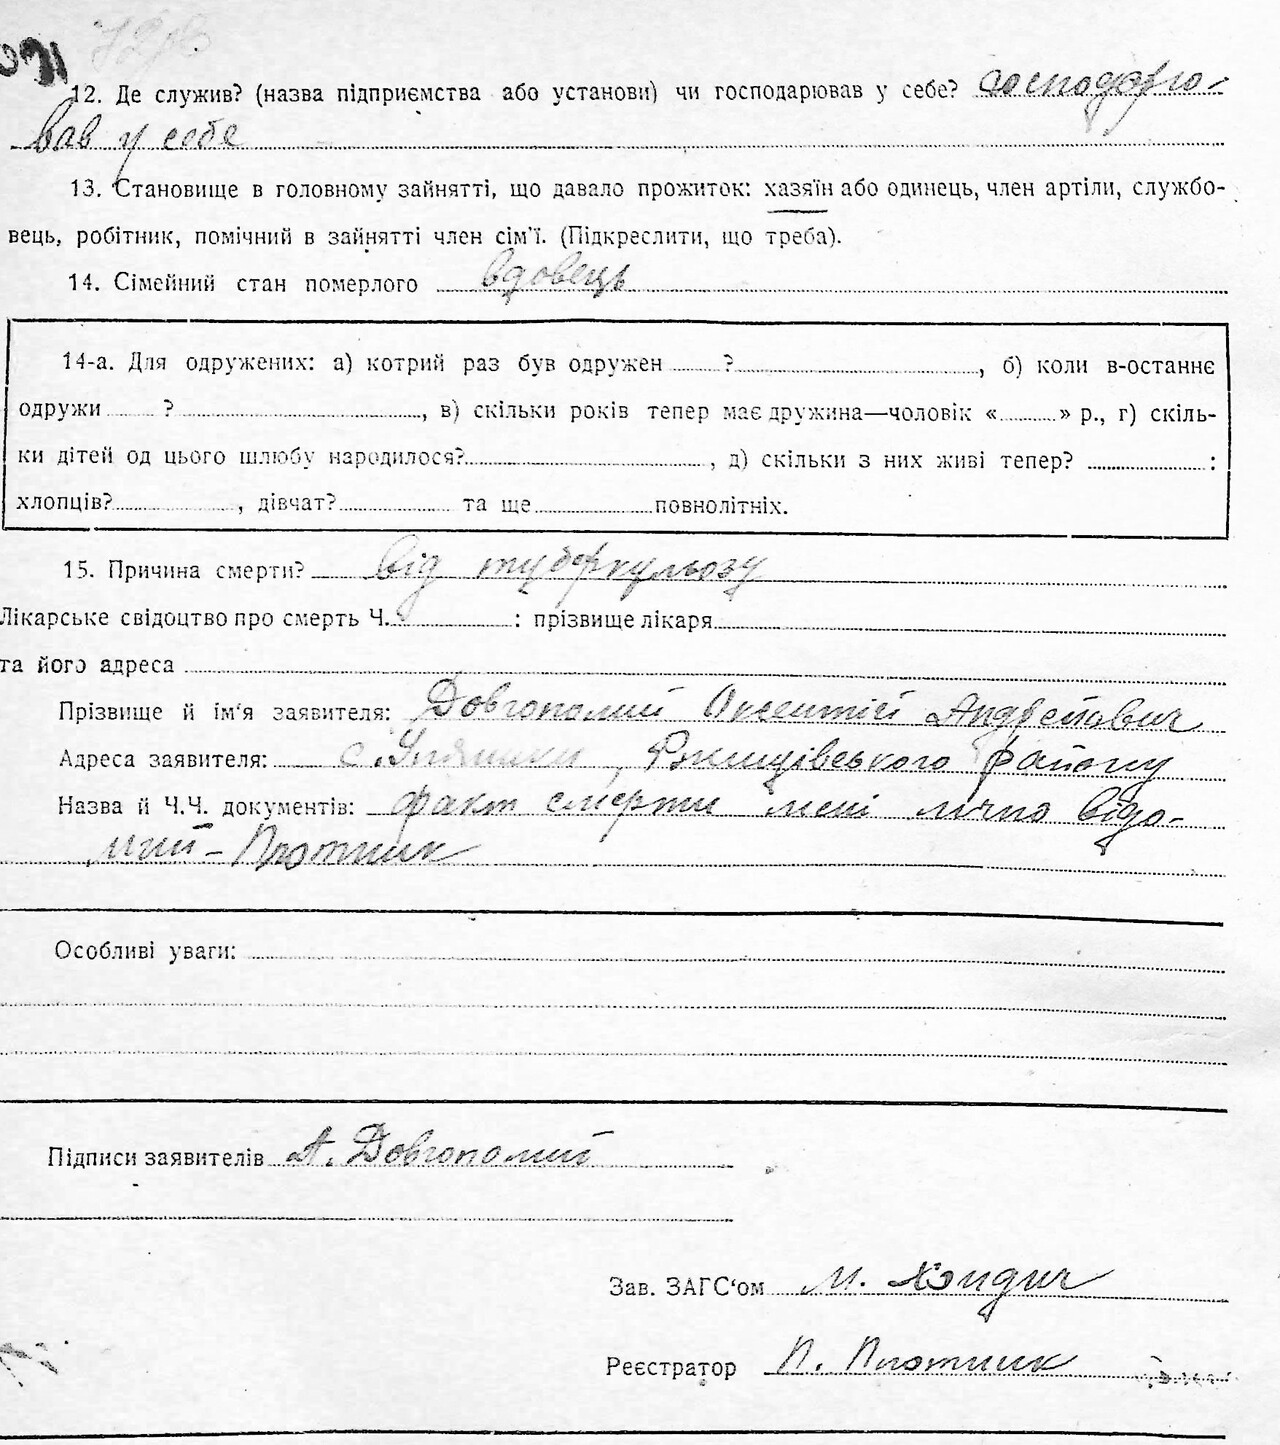 12. Де служив? (назва підприємства або установи) чи господарював у себе? господарю-
вав у себе
13. Становище в головному зайнятті, що давало прожиток: хазяїн або одинець, член артіли, службо-
вець, робітник, помічний в зайнятті член сім'ї. (Підкреслити, що треба).
14. Сімейний стан померлого вдовець
14-а. Для одружених: а) котрий раз був одружен ? , б) коли в-останнє
одружи ? , в) скільки років тепер має дружина—чоловік « » р., г) скіль-
ки дітей од цього шлюбу народилося? , д) скільки з них живі тепер? :
хлопців? , дівчат? та ще повнолітніх.
15. Причина смерти? від туберкульозу
Лікарське свідоцтво про смерть Ч. : прізвище лікаря
та його адреса
Прізвище й ім'я заявителя: Довгополий Оксентій Андрійович
Адреса заявителя: с. Уляники, Ржищівського району
Назва й Ч.Ч. документів: факт смерти мені лічно відо-
мий – Плотник
Особливі уваги:
Підписи заявителів А. Довгополий
Зав. ЗАГС'ом М.
Реєстратор П. Плотник